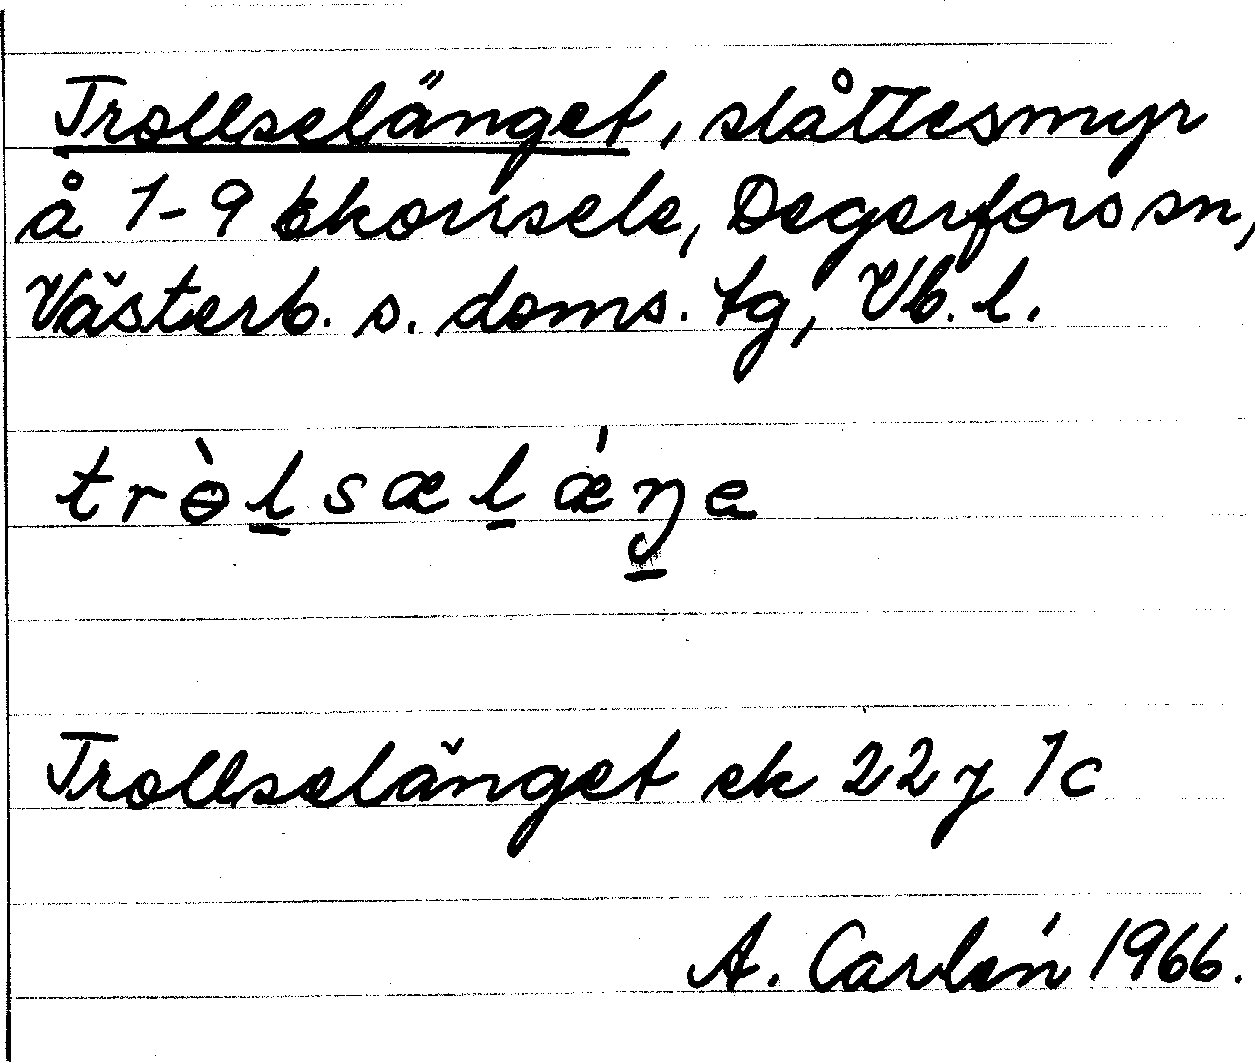 Trollselänget, slåttesmyr
å 1-9 Ekorrsele, Degerfors sn,
Västerb. s. doms. tg, Vb. l.
trɵ̀l̲sæl̲ǽŋ̲e
Trollselänget ek 22 j 1c
A. Carlén 1966.